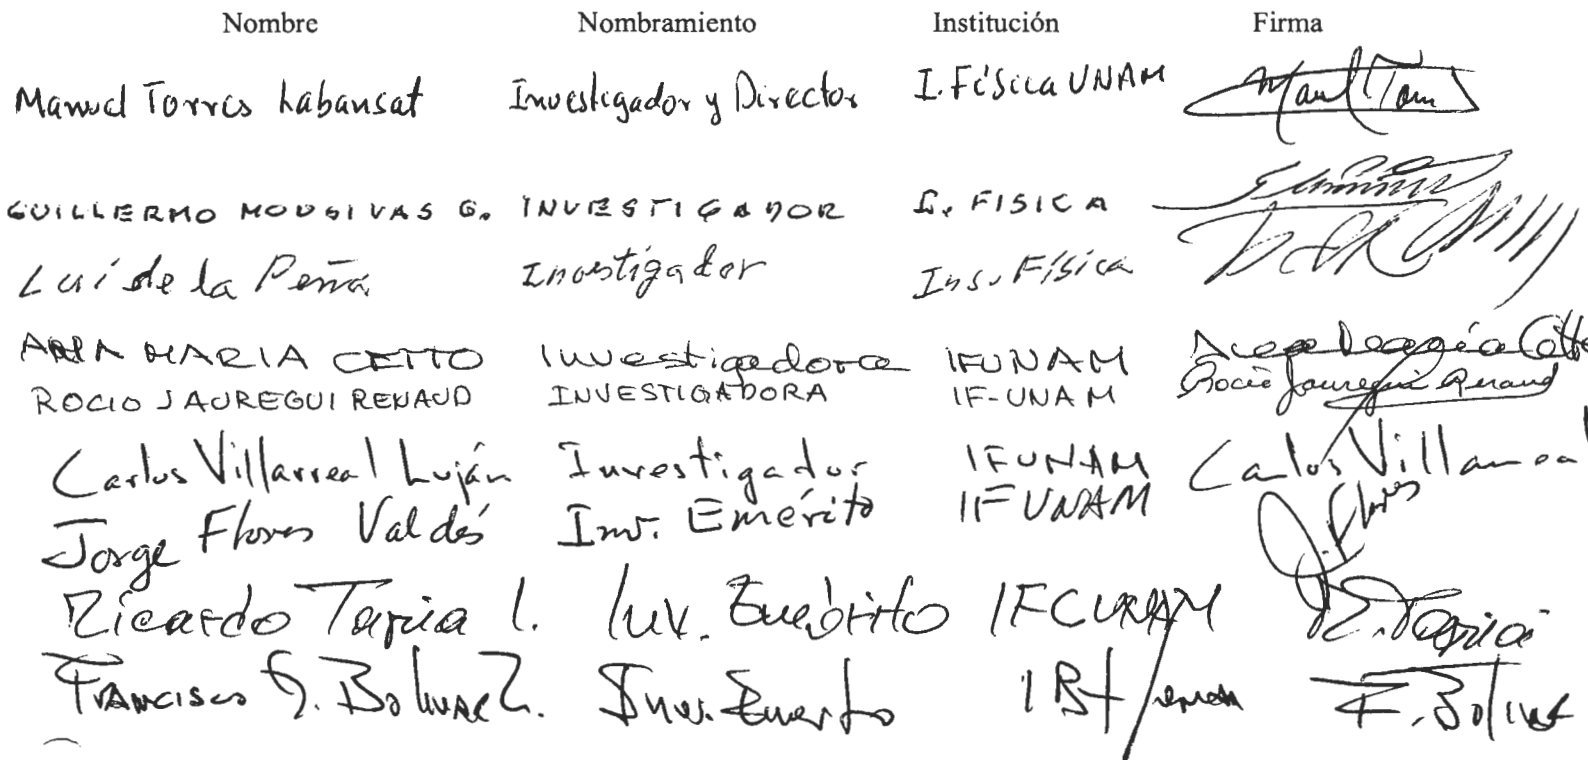 Nombre Nombramiento Institución Firma
Manuel Torres Labansat Investigador y Director I. Física UNAM Manuel Torres
GUILLERMO MONSIVAIS G. INVESTIGADOR I. FISICA
Luis de la Peña Investigador Ins. Física
ANA MARIA CETTO Investigadora IFUNAM Ana María Cetto
ROCIO JAUREGUI RENAUD INVESTIGADORA IF-UNAM Rocío Jauregui Renaud
Carlos Villarreal Luján Investigador IFUNAM Carlos Villarreal
Jorge Flores Valdés Inv. Emérito IFUNAM J. Flores
Ricardo Tapia I. Inv. Emérito IFCUNAM R. Tapia
Francisco G. Bolivar Z. Inv. Emerito IBt/UNAM F. Bolivar